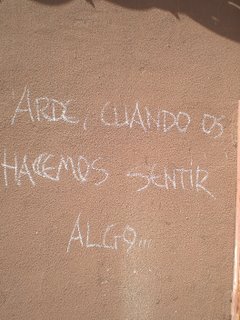 ARDE, CUANDO OS
HACEMOS SENTIR
ALGO...